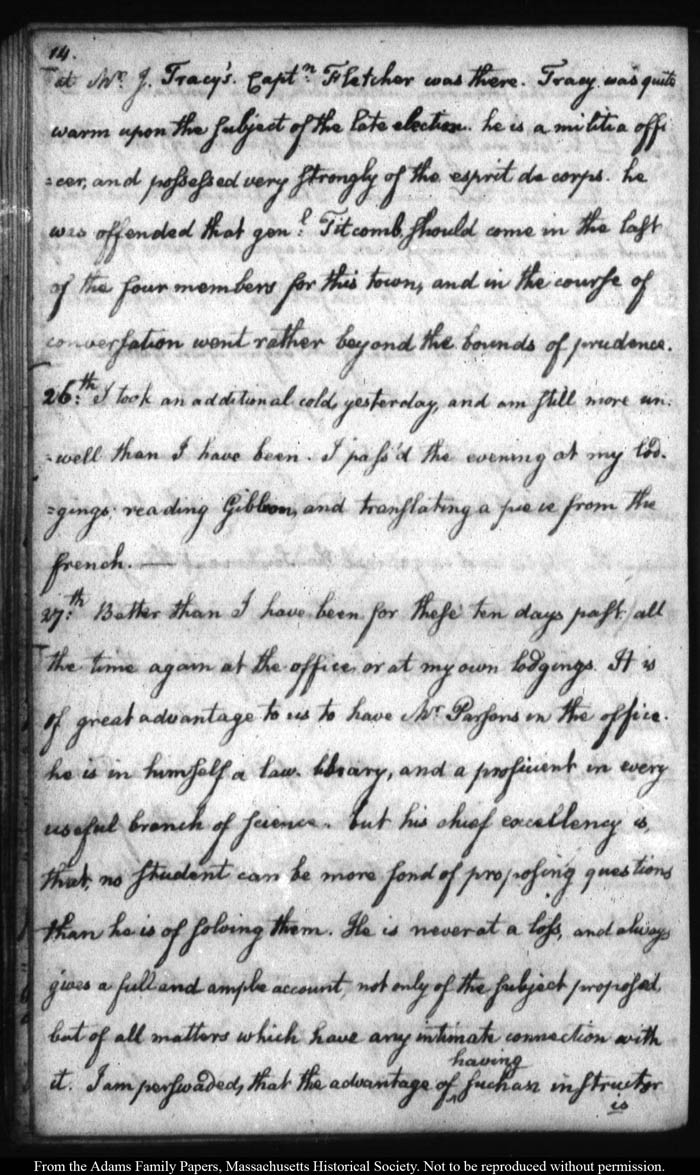 14.
at Mr. J. Tracy's. Captn. Fletcher was there. Tracy was quite
warm upon the subject of the late election. he is a militia offi
=cer, and possessed very strongly of the esprit de corps. he
was offended that genl. Titcomb, should come in the last
of the four members for this town, and in the course of
conversation went rather beyond the bounds of prudence.
26th. I took an additional cold, yesterday, and am still more un-
-well than I have been. I pass'd the evening at my lod-
=gings: reading Gibbon, and translating a piece from the
french. —
27th. Better than I have been for these ten days past. all
the time again at the office, or at my own lodgings. It is
of great advantage to us to have Mr. Parsons in the office.
he is in himself a law library, and a proficient in every
useful branch of science. but his chief excellency is,
that, no student can be more fond of proposing questions
than he is of solving them. He is never at a loss, and always
gives a full and ample account, not only of the subject proposed,
but of all matters which have any intimate connection with
it. I am perswaded, that the advantage of ^having such an instructor
is
From the Adams Family Papers, Massachusetts Historical Society. Not to be reproduced without permission.